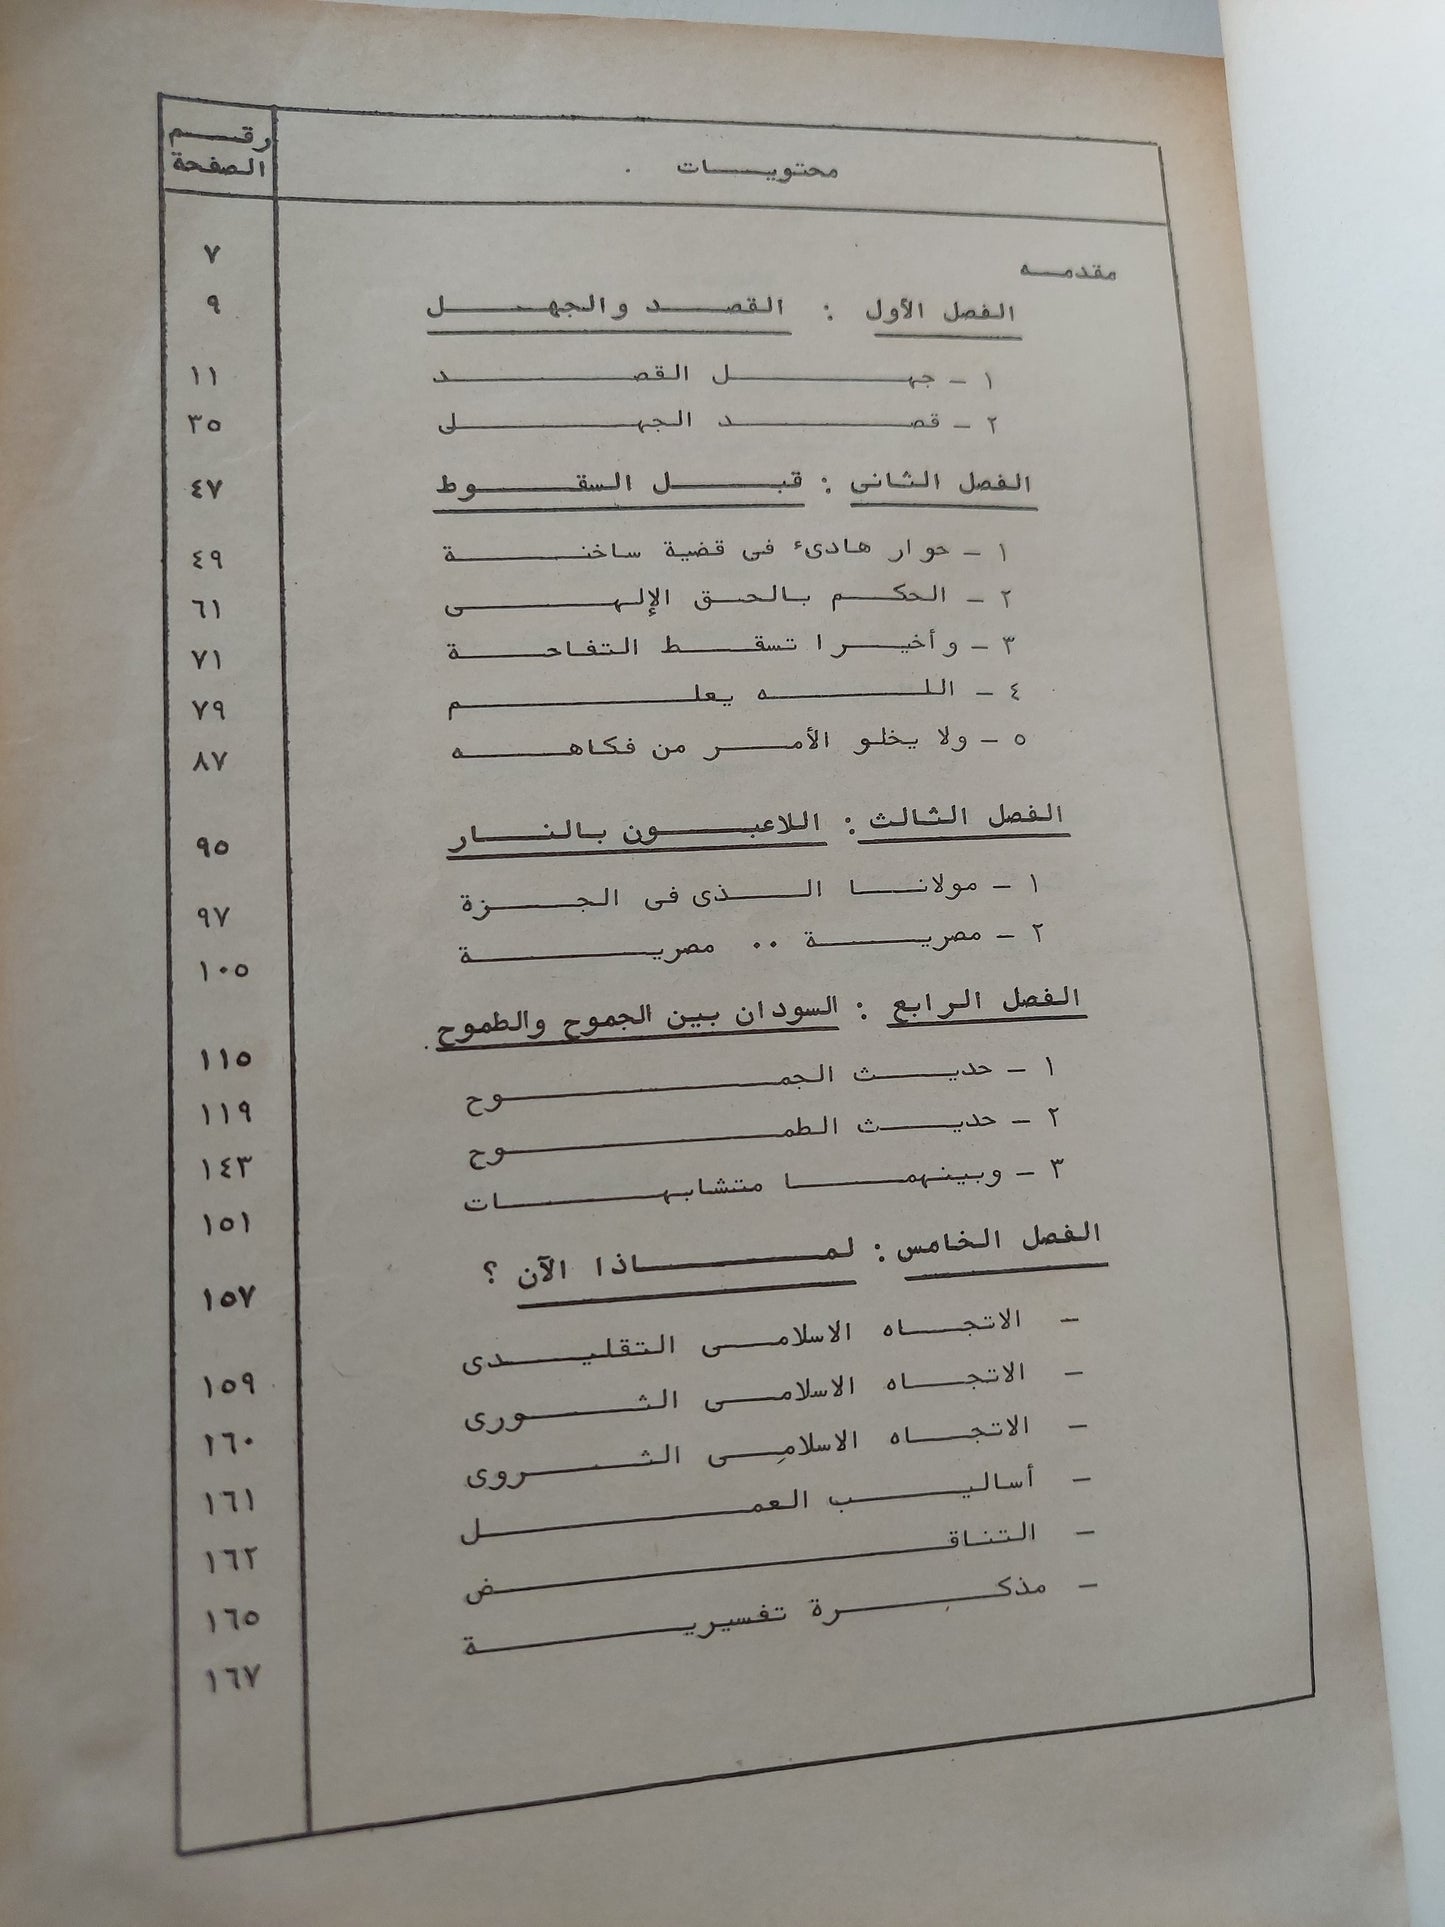 محتويات
رقم
الصفحة
مقدمه ٧
الفصل الأول : القصد والجهل ٩
١ - جهل القصد ١١
٢ - قصد الجهل ٣٥
الفصل الثانى : قبل السقوط ٤٧
١ - حوار هادىء فى قضية ساخنة ٤٩
٢ - الحكم بالحق الإلهى ٦١
٣ - وأخيرا تسقط التفاحة ٧١
٤ - الله يعلم ٧٩
٥ - ولا يخلو الأمر من فكاهه ٨٧
الفصل الثالث : اللاعبون بالنار ٩٥
١ - مولانا الذى فى الجزة ٩٧
٢ - مصرية .. مصرية ١٠٥
الفصل الرابع : السودان بين الجموح والطموح ١١٥
١ - حديث الجموح ١١٩
٢ - حديث الطموح ١٤٣
٣ - وبينهما متشابهات ١٥١
الفصل الخامس : لماذا الآن ؟ ١٥٧
- الاتجاه الاسلامى التقليدى ١٥٩
- الاتجاه الاسلامى الثورى ١٦٠
- الاتجاه الاسلامى الثروى ١٦١
- أساليب العمل ١٦٢
- التناقض ١٦٥
- مذكرة تفسيرية ١٦٧